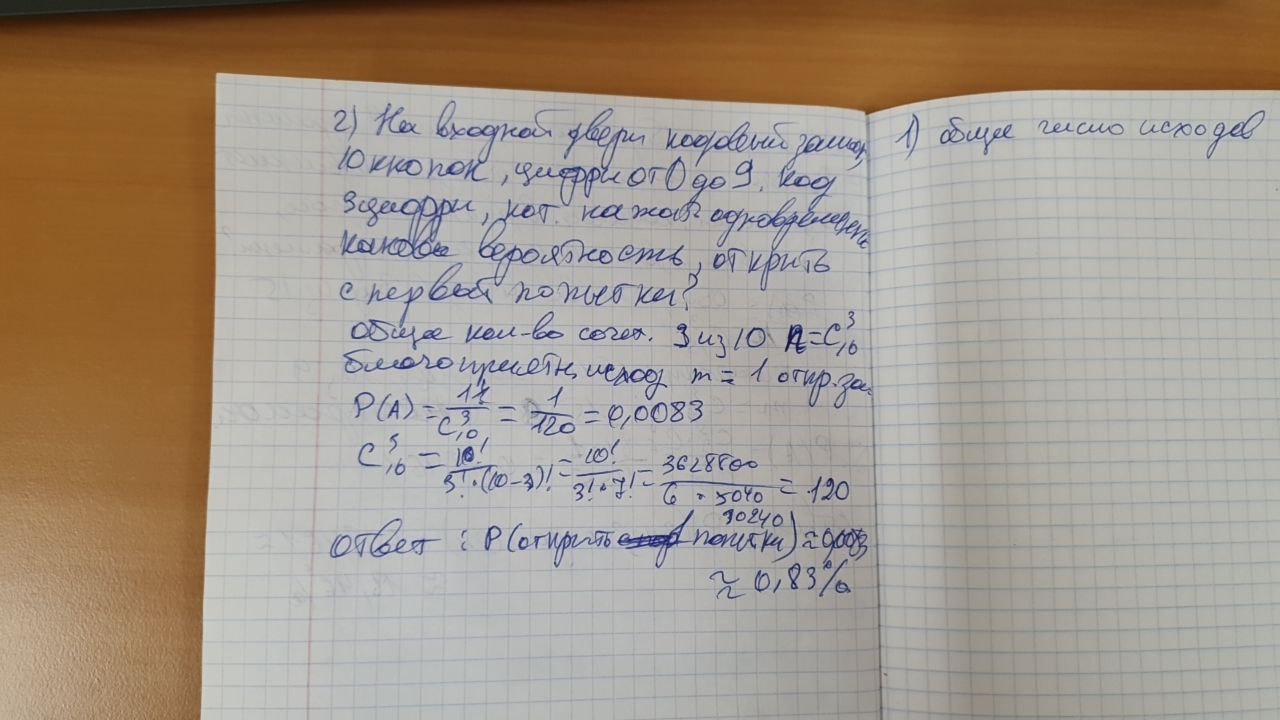 2) На входной двери кодовый замок,
10 кнопок, цифри от 0 до 9. Код
3 цифри, кот. нажать одновременно
какова вероятность, открить
с первой попытки?
общее кол-во сочет. 3 из 10 n = C₁₀³
благоприятн. исход m = 1 откр. за.
P(A) = 1/C₁₀³ = 1/120 = 0,0083
C₁₀³ = 10!/3!·(10-3)! = 10!/3!·7! = 3628800/6·5040 = 120
30240
ответ: P(открить попитки) ≈ 0,0083
≈ 0,83%
1) общее число исходов